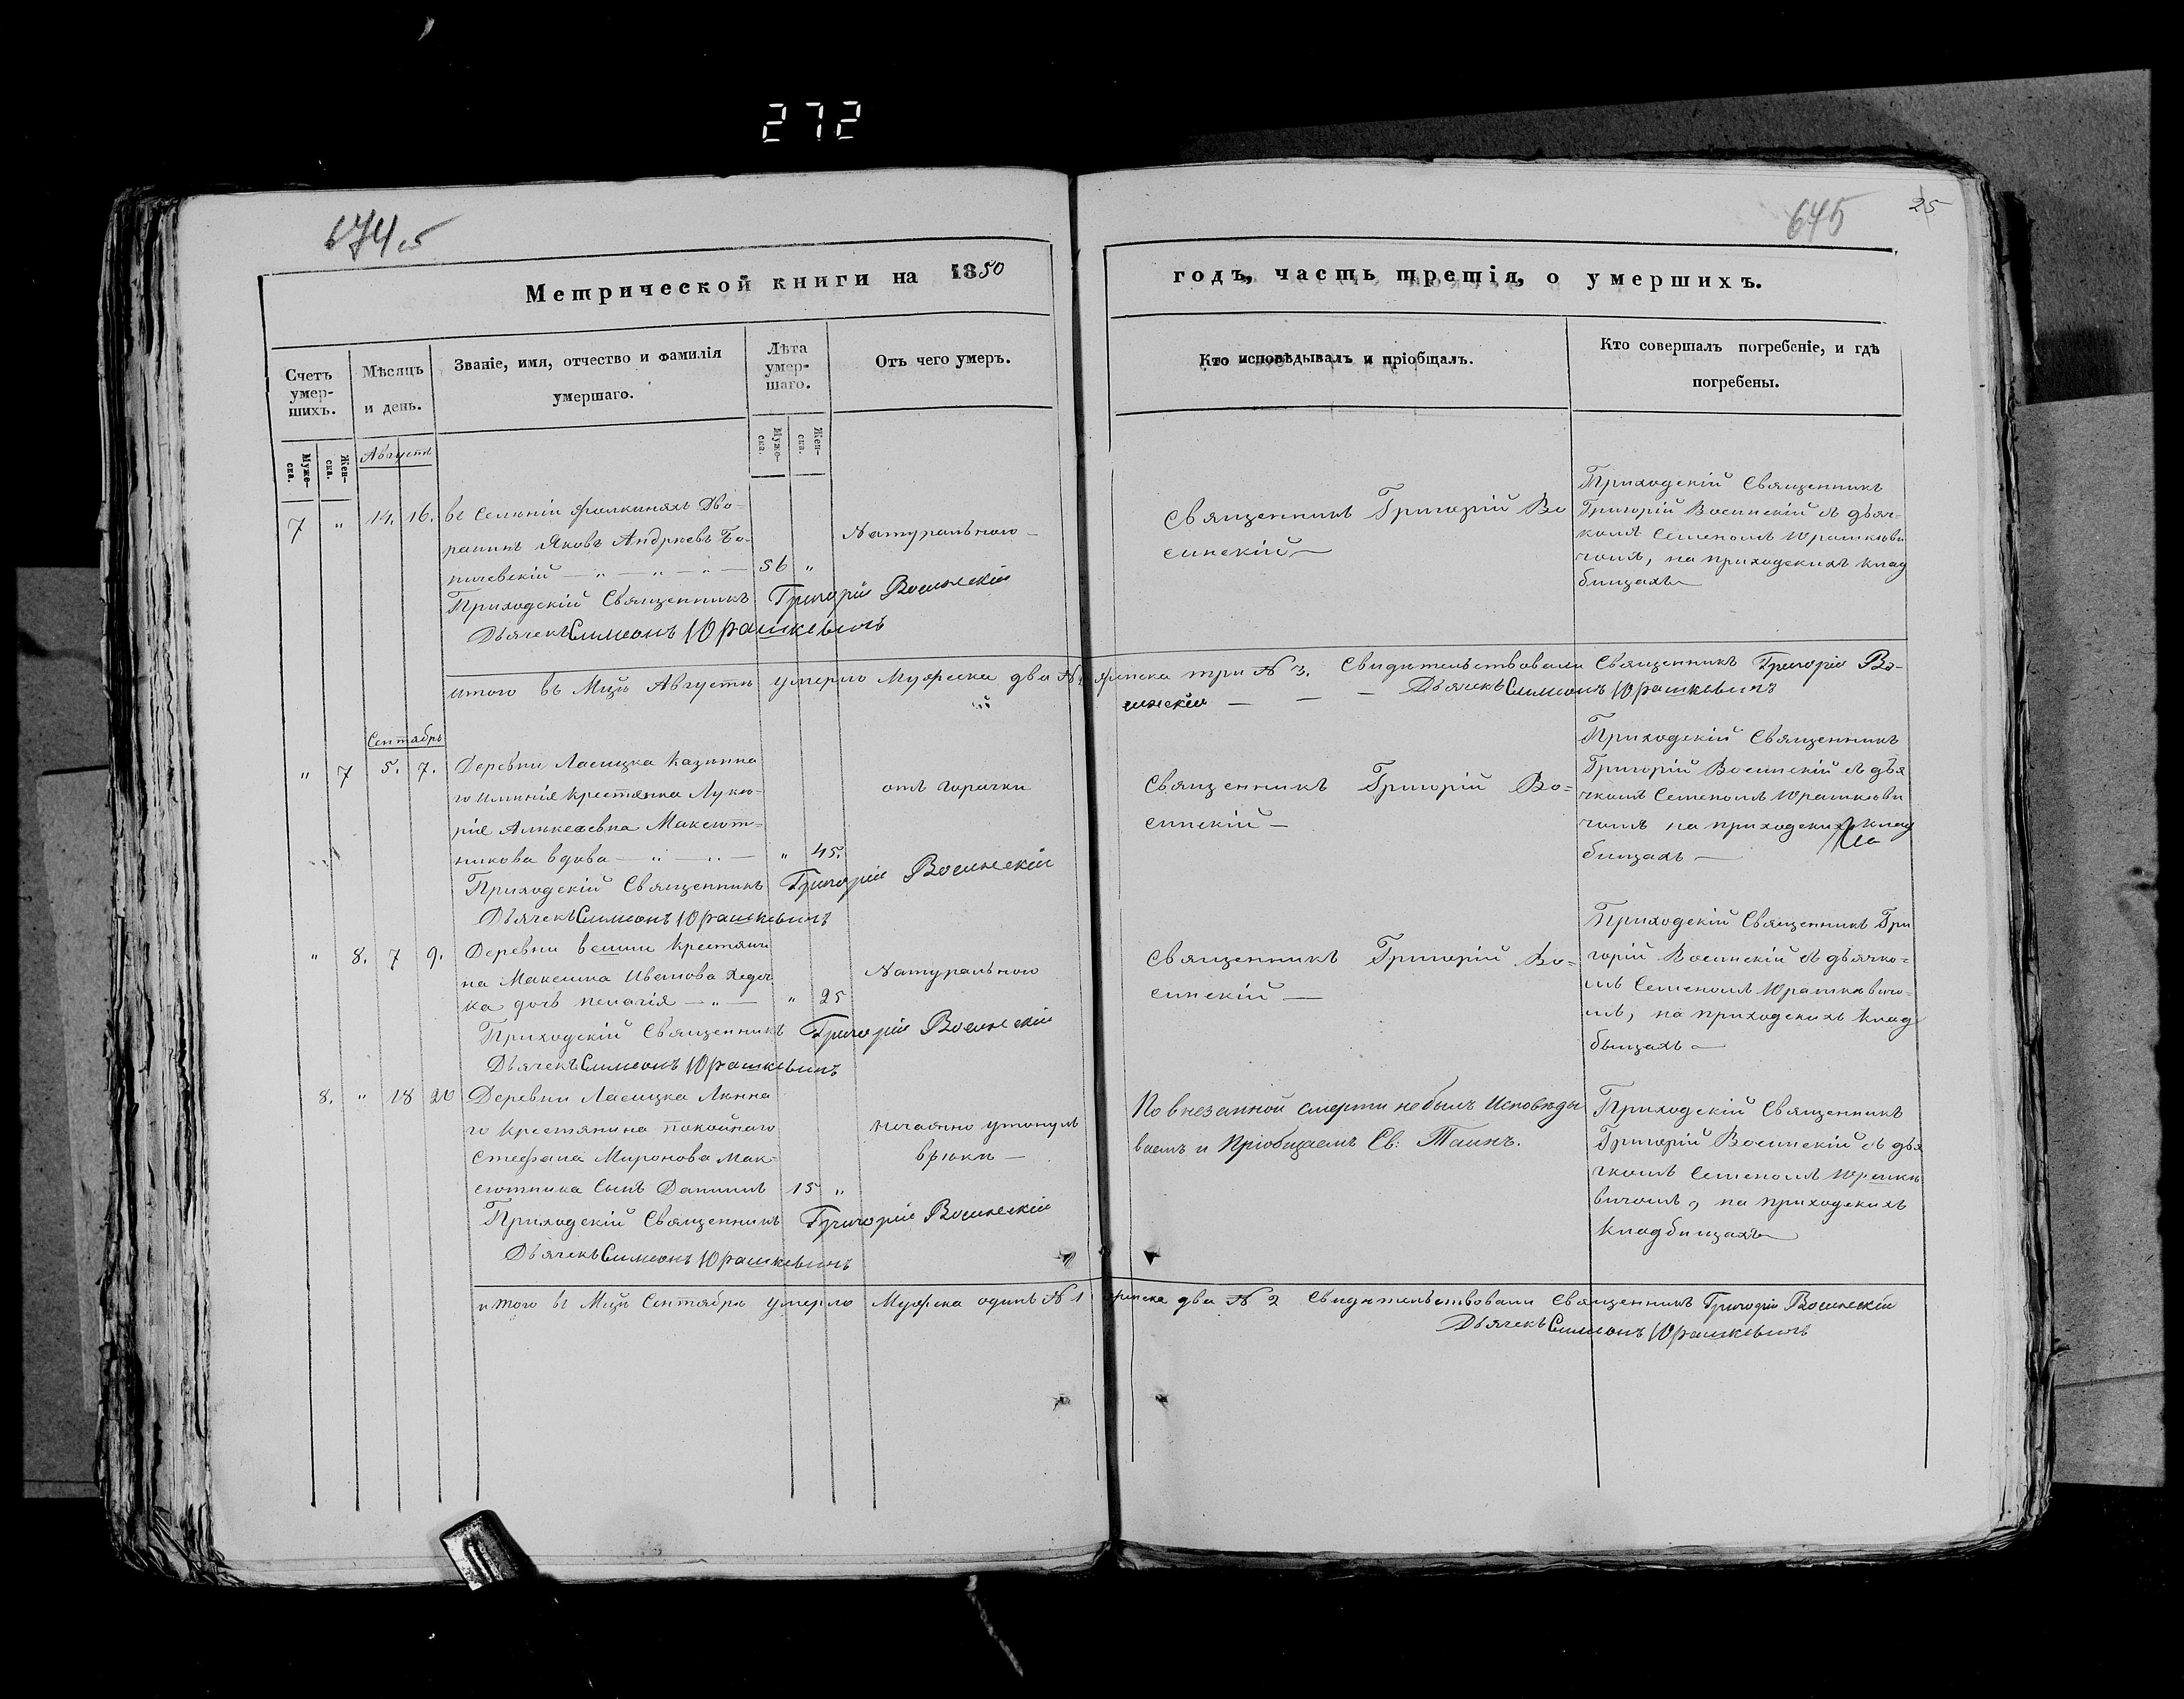 272
645
25
Метрической книги на 1850
годъ, часть третія, о умершихъ.
Счетъ умер-шихъ.
Мѣсяцъ и день.
Званіе, имя, отчество и фамилія умершаго.
Лѣта умер-шаго.
Отъ чего умеръ.
Кто исповѣдывалъ и пріобщалъ.
Кто совершалъ погребеніе, и гдѣ погребены.
Муже-ска.
Жен-ска.
Муже-ска.
Жен-ска.
Августъ
7 " 14. 16.
Дво-
ранинъ Яковъ Андреевъ Бо-
ричевскій — " — " — " — 56 "
Натурального —
Приходскій Священникъ Григорій Восинскій
Дьячекъ Симеонъ Юрашкевичъ
Священникъ Григорій Во
синскій —
Приходскій Священникъ
Григорій Восинскій съ дьяч-
комъ Семеномъ Юрашкеви
чомъ, на приходскихъ клад
бищахъ —
итого въ Мцѣ Августѣ умерло Мужеска два № женска три № 3. Свидѣтельствовали Священникъ Григорій Во-
синскій — — — Дьячекъ Симеонъ Юрашкевичъ
Сентябрь
" 7 5. 7.
Деревни Ласицка Казенна
го имѣнія крестянка Луке-
рія Алексеевна Максют-
никова вдова — " — " — " 45.
отъ горячки
Приходскій Священникъ Григорій Восинскій
Дьячекъ Симеонъ Юрашкевичъ
Священникъ Григорій Во=
синскій —
Приходскій Священникъ
Григорій Восинскій съ дья
чкомъ Семеномъ Юрашкеви
чомъ на приходскихъ клад
бищахъ —
" 8. 7 9.
Деревни крестяни
на Максима Иванова
ка дочь пелагія — " — " 25
Натурального
Приходскій Священникъ Григорій Восинскій
Дьячекъ Симеонъ Юрашкевичъ
Священникъ Григорій Во=
синскій —
Приходскій Священникъ Гри
горій Восинскій съ дьячко=
мъ Семеномъ Юрашкевичо-
мъ, на приходскихъ клад
бищахъ —
8. " 18 20
Деревни Ласицка
го крестянина покойнаго
Стефана Миронова Мак-
сютника сынъ Даниилъ 15 "
нечаянно утонулъ
врѣкѣ —
Приходскій Священникъ Григорій Восинскій
Дьячекъ Симеонъ Юрашкевичъ
По внезапной смерти небылъ Исповѣды
ваемъ и Пріобщаемъ Св: Таинъ.
Приходскій Священникъ
Григорій Восинскій съ дья
чкомъ Семеномъ Юрашке
вичомъ, на приходскихъ
кладбищахъ —
итого въ Мцѣ Сентябрѣ умерло Мужеска одинъ № 1 женска два № 2 Свидѣтельствовали Священникъ Григорій Восинскій
Дьячекъ Симеонъ Юрашкевичъ